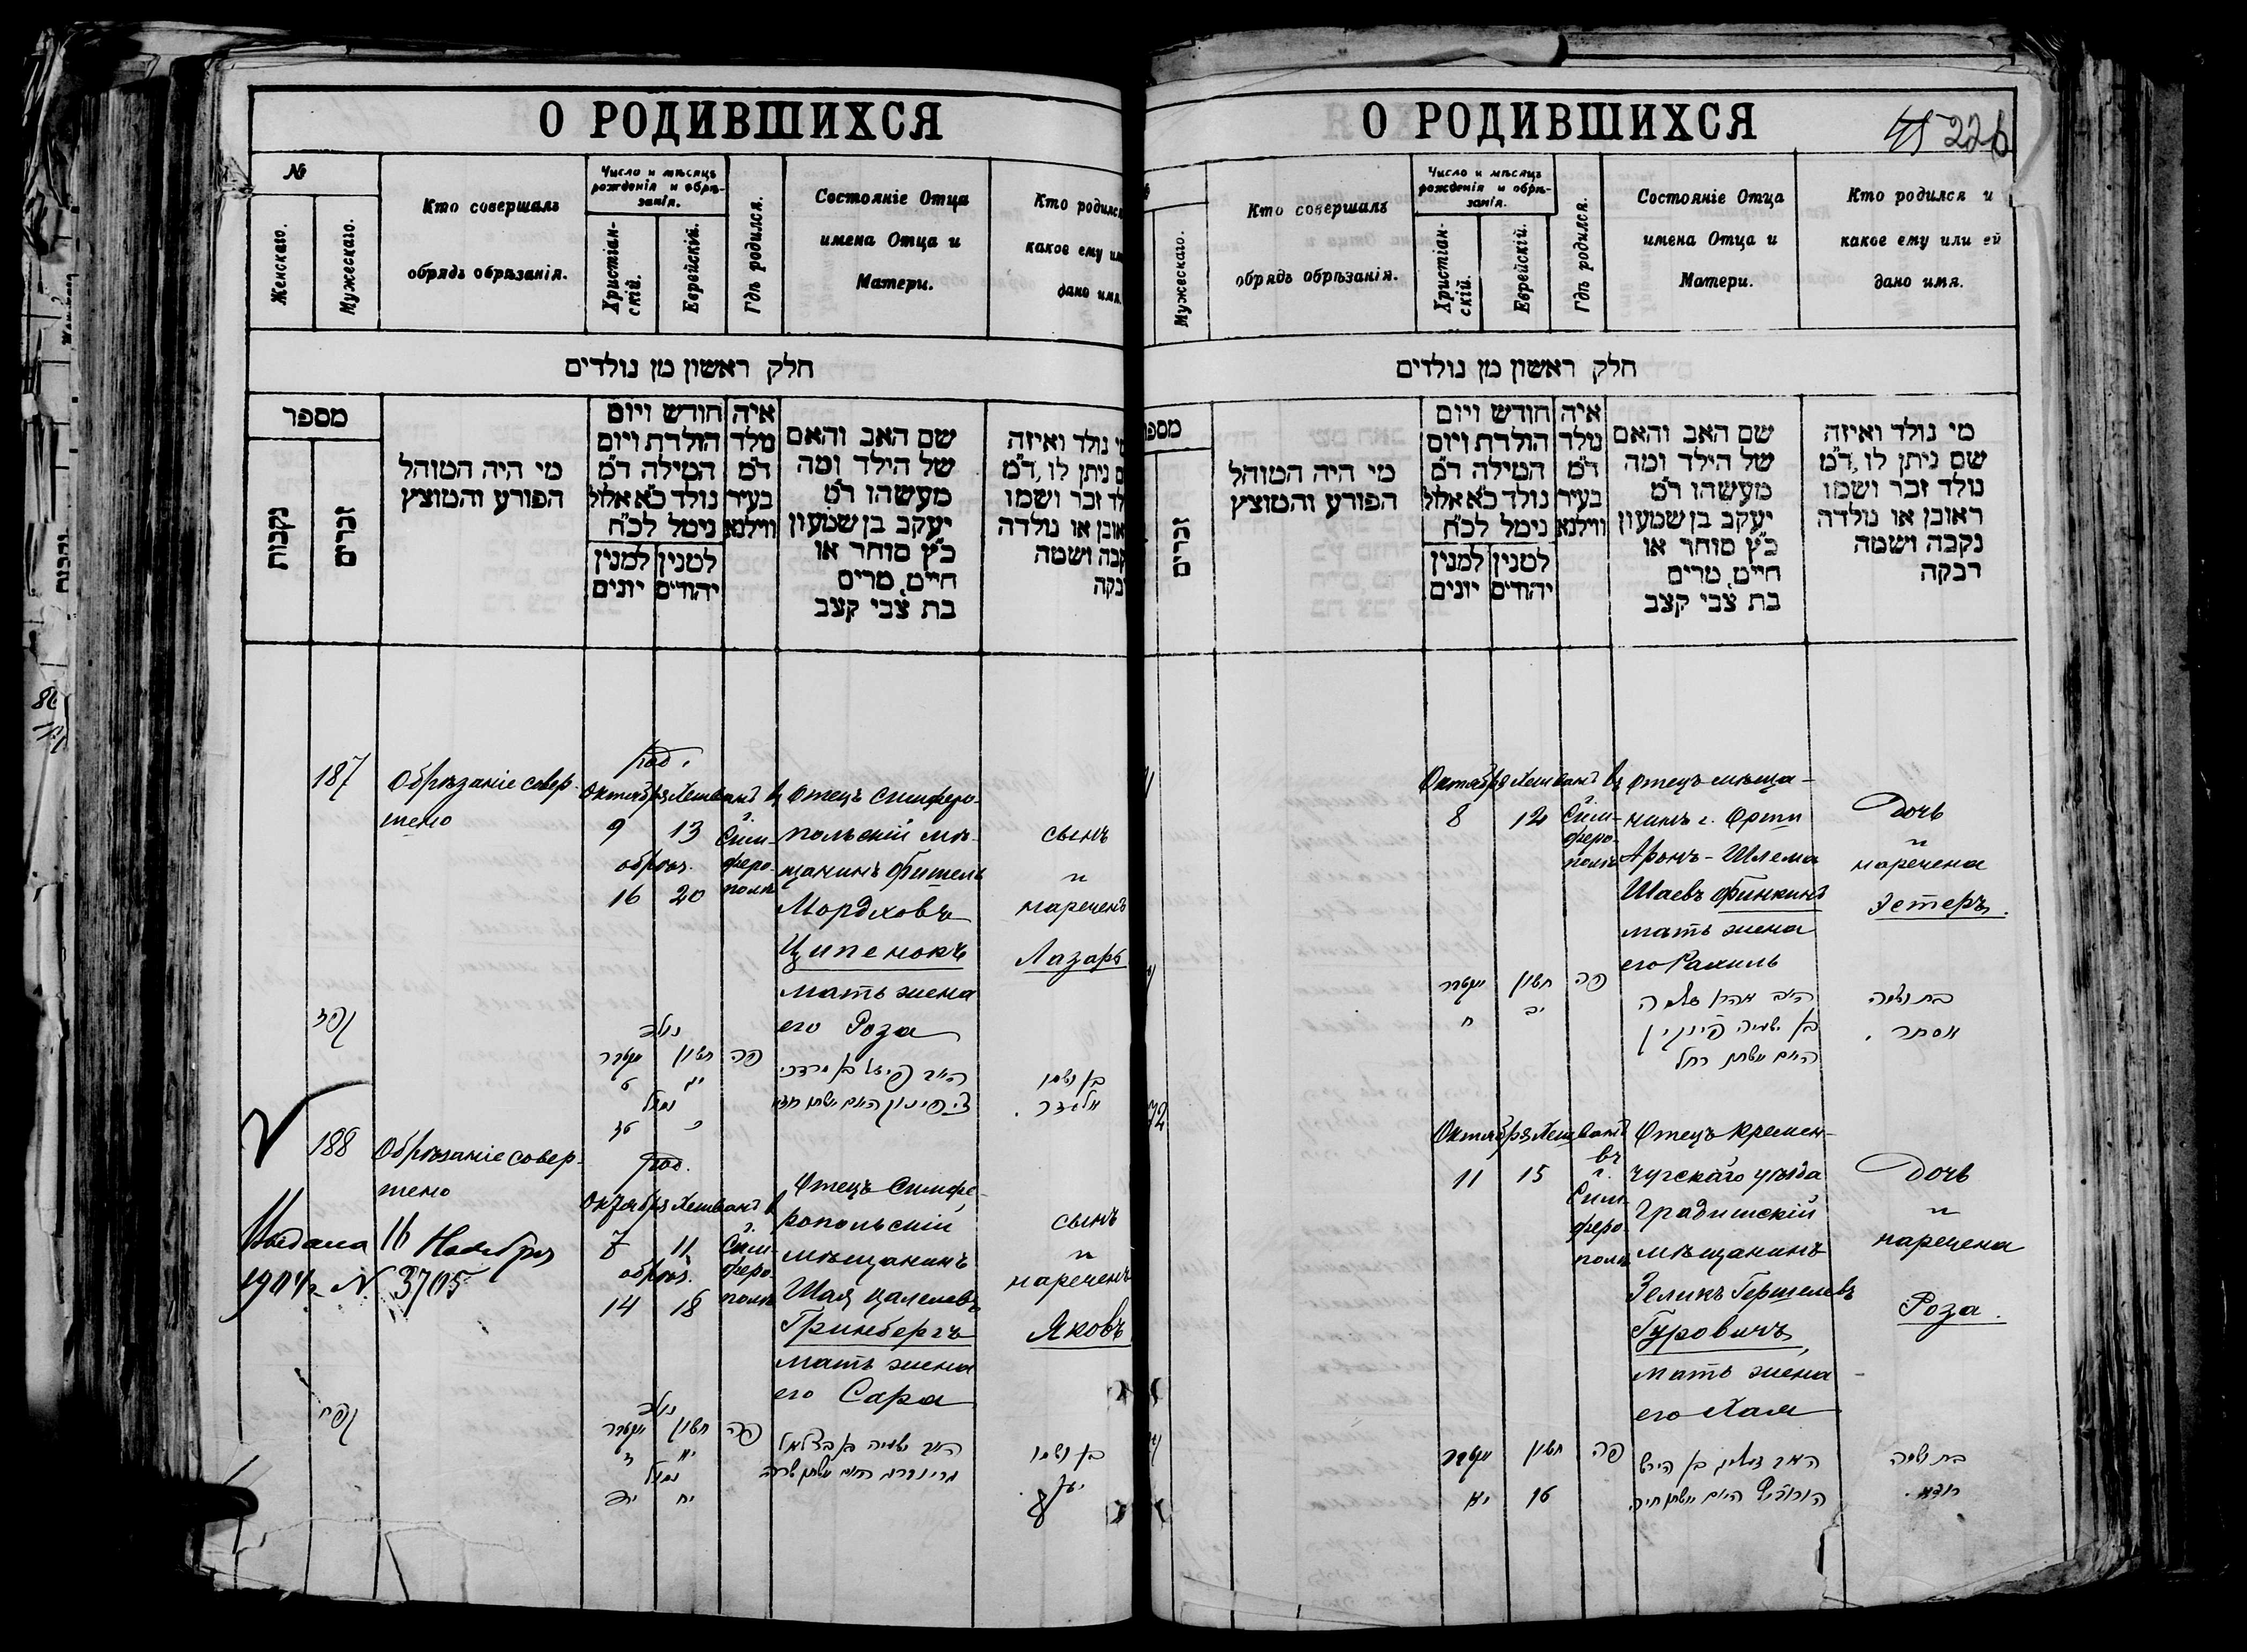 О РОДИВШИХСЯ
№
Женскаго.
Мужескаго.
Кто совершалъ
обрядъ обрѣзанія.
Число и мѣсяцъ
рожденія и обрѣ-
занія.
Христіан-
скій.
Еврейскій.
Гдѣ родился.
Состояніе Отца
имена Отца и
Матери.
Кто родился
какое ему
дано имя.
חלק ראשון מן נולדים
מספר
נקבות
זכרים
מי היה המוהל
הפורע והמוצץ
חודש ויום
הולדת ויום
המילה ד״מ
נולד כ״א אלול
נימל לכ״ח
למנין
יהודים
למנין
יונים
איה
מלד
ד״מ
בעיר
ווילנא
שם האב והאם
של הילד ומה
מעשהו ד״מ
יעקב בן שמעון
כ״ץ סוחר או
חייט, מרים
בת צבי קצב
נולד ואיזה
ניתן לו, ד״מ
זכר ושמו
או נולדה
ושמה
187
Обрѣзаніе совер-
шено
род.
Октября Хешванъ
9 13
обрѣз.
16 20
въ
г.
Сим-
феро-
полѣ
Отецъ симферо-
польскій мѣ-
щанинъ Фитель
Мордховъ
Ципенокъ
мать жена
его Роза
сынъ
и
нареченъ
Лазарь
קפז
נולד
חשון
פה
בן ושמו
אליעזר.
188
Обрѣзаніе совер-
шено
род.
Октября Хешванъ
7 11
обрѣз.
14 18
в
г.
Сим-
феро-
полѣ
Отецъ Симфе-
ропольскій
мѣщанинъ
Шая
Гринбергъ
мать жена
его Сара
сынъ
и
нареченъ
Яковъ
Выдана 16 Ноября
1904 г. N 3705
קפח
נולד
חשון
פה
בן ושמו
יעקב.
О РОДИВШИХСЯ
45 226
Мужескаго.
Кто совершалъ
обрядъ обрѣзанія.
Число и мѣсяцъ
рожденія и обрѣ-
занія.
Христіан-
скій.
Еврейскій.
Гдѣ родился.
Состояніе Отца
имена Отца и
Матери.
Кто родился и
какое ему или ей
дано имя.
חלק ראשון מן נולדים
זכרים
מי היה המוהל
הפורע והמוצץ
חודש ויום
הולדת ויום
המילה ד״מ
נולד כ״א אלול
נימל לכ״ח
למנין
יהודים
למנין
יונים
איה
מלד
ד״מ
בעיר
ווילנא
שם האב והאם
של הילד ומה
מעשהו ד״מ
יעקב בן שמעון
כ״ץ סוחר או
חייט, מרים
בת צבי קצב
מי נולד ואיזה
שם ניתן לו, ד״מ
נולד זכר ושמו
ראובן או נולדה
נקבה ושמה
רבקה
Октября Хешванъ
8 12
въ
г.
Сим-
феро-
полѣ
Отецъ мѣща-
нинъ г. Орши
Аронъ-Шлема
Шаевъ Финкинъ
мать жена
его Рахиль
Дочь
и
наречена
Эстеръ.
חשון
פה
האב אהרן שלמה
בן ישעיה פינקין
האם אשתו רחל
בת ושמה
אסתר.
72
Октября Хешванъ
11 15
въ
г.
Сим-
феро-
полѣ
Отецъ кремен-
чугскаго уѣзда
Градижскій
мѣщанинъ
Зеликъ Гершелевъ
Гуровичъ
мать жена
его Хая
Дочь
и
наречена
Роза.
חשון
פה
בת ושמה
רוזא.